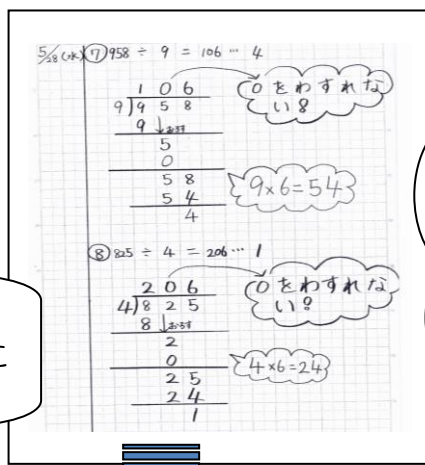 5/28(水) ⑦ 958 ÷ 9 = 106 … 4
1 0 6
9)9 5 8
9 ↓おろす
5
0
5 8
5 4
4
0をわすれな
い!!
9×6=54
⑧ 825 ÷ 4 = 206 … 1
2 0 6
4)8 2 5
8 ↓おろす
2
0
2 5
2 4
1
0をわすれな
い!!
4×6=24